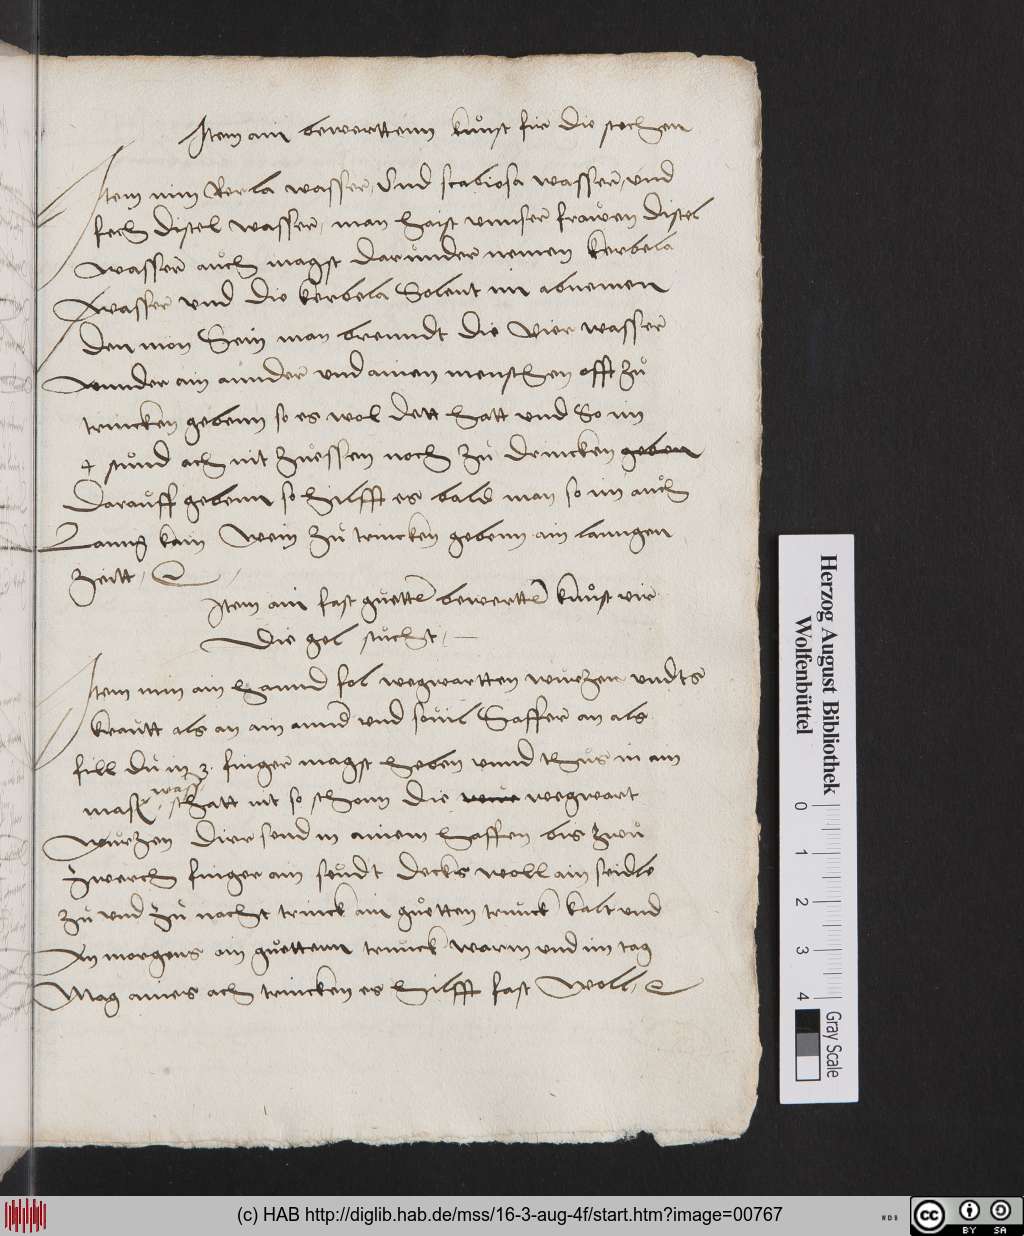 Item ain bewerttenn kunst fir die stechen
Item nim Kerla wasser, Und scabiosa wasser, und
sech distel wasser, man haist unnser frawen distel
wasser auch magst darunder nemen kerbela
wasser und die kerbela Solent im abnemen
den mon Sein man brenndt die vier wasser
unnder ain annder und ainen menschen offt zu
trincken gebenn so es wol dett hatt und So im
4 stund ach nit zuessen noch zu drincken geben
darauff gebenn so hilfft es bald man so im auch
Lanng kain Wein zu trincken gebenn ain lanngen
zeitt,
Item ain fast guette bewertte kunst vir
die gel sucht,
Item nim ain hannd fol wegwartten wurzen und ts
krautt als an ain annd und sovil Saffer an als
fill du in 3. finger magst heben unnd thus in ain
mass wasser schatt nit so schonn die wegwart
wurzen dirr send in ainem haffen bis zwu
zwerch finger ain seudt decks woll ain seidle
zu und zu nacht trinck ain guetten trunck kalt und
An morgens ain guettenn trunck warm und im tag
Mag aines ach trincken es hilfft fast woll,
Herzog August Bibliothek
Wolfenbüttel
0 1 2 3 4
Gray Scale
(c) HAB http://diglib.hab.de/mss/16-3-aug-4f/start.htm?image=00767
WDB
cc BY SA